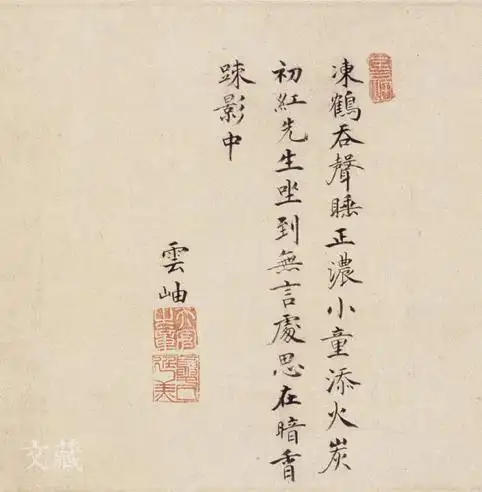 凍鶴吞聲睡正濃小童添火炭
初紅先生坐到無言處思在暗香
疎影中
雲岫
文藏